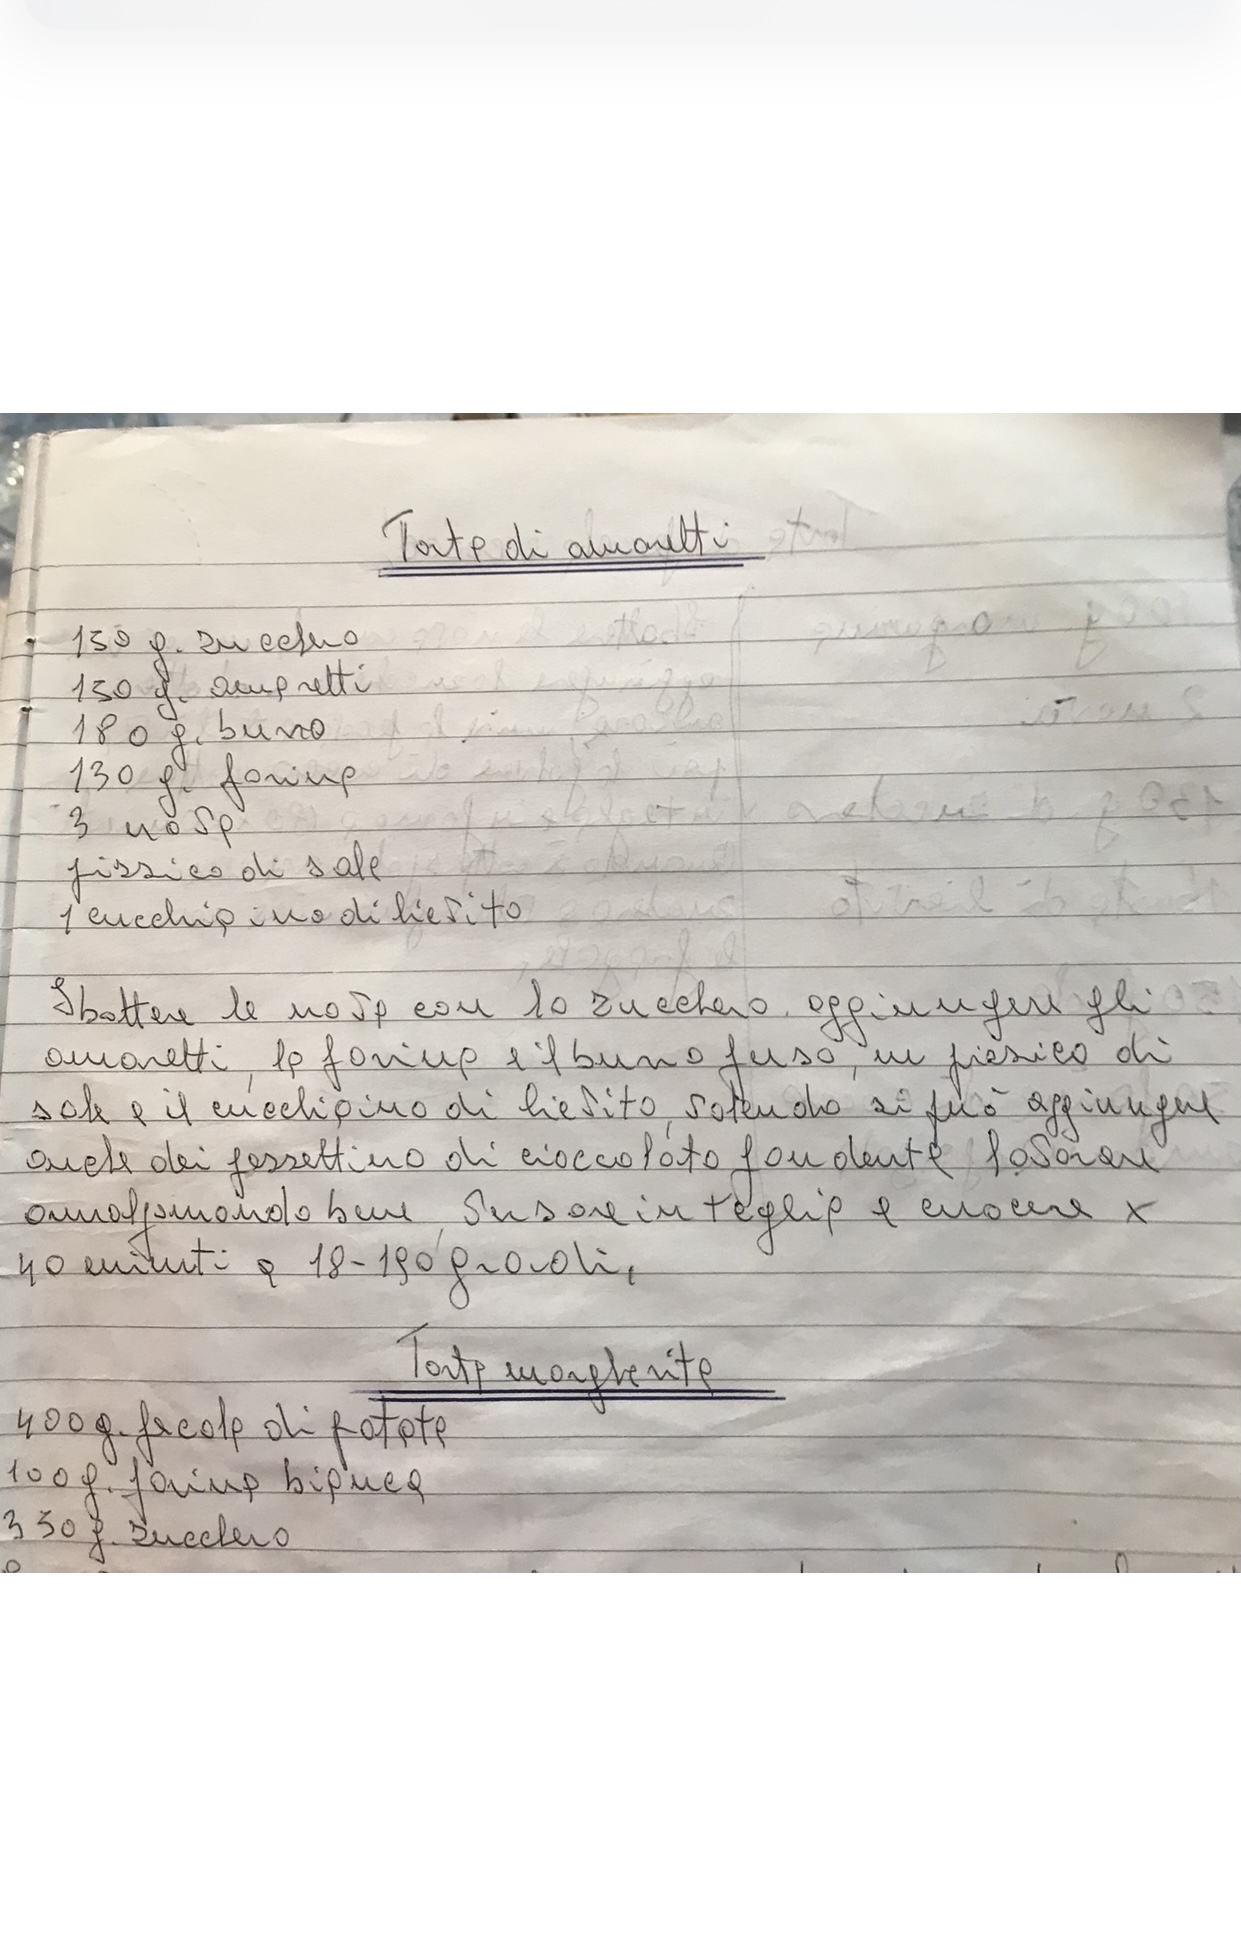 Torta di amaretti
150 g. zucchero
150 g. amaretti
180 g. burro
130 g. farina
3 uova
pizzico di sale
1 cucchiaino di lievito
Sbattere le uova con lo zucchero. aggiungere gli
amaretti, la farina e il burro fuso, un pizzico di
sale e il cucchiaino di lievito, volendo si può aggiungere
anche dei pezzettino di cioccolato fondente lavorare
amalgamando bene, Versare in teglia e cuocere x
40 minuti a 18-190 gradi,
Torta margherita
400 g. fecola di patate
100 g. farina bianca
350 g. zucchero